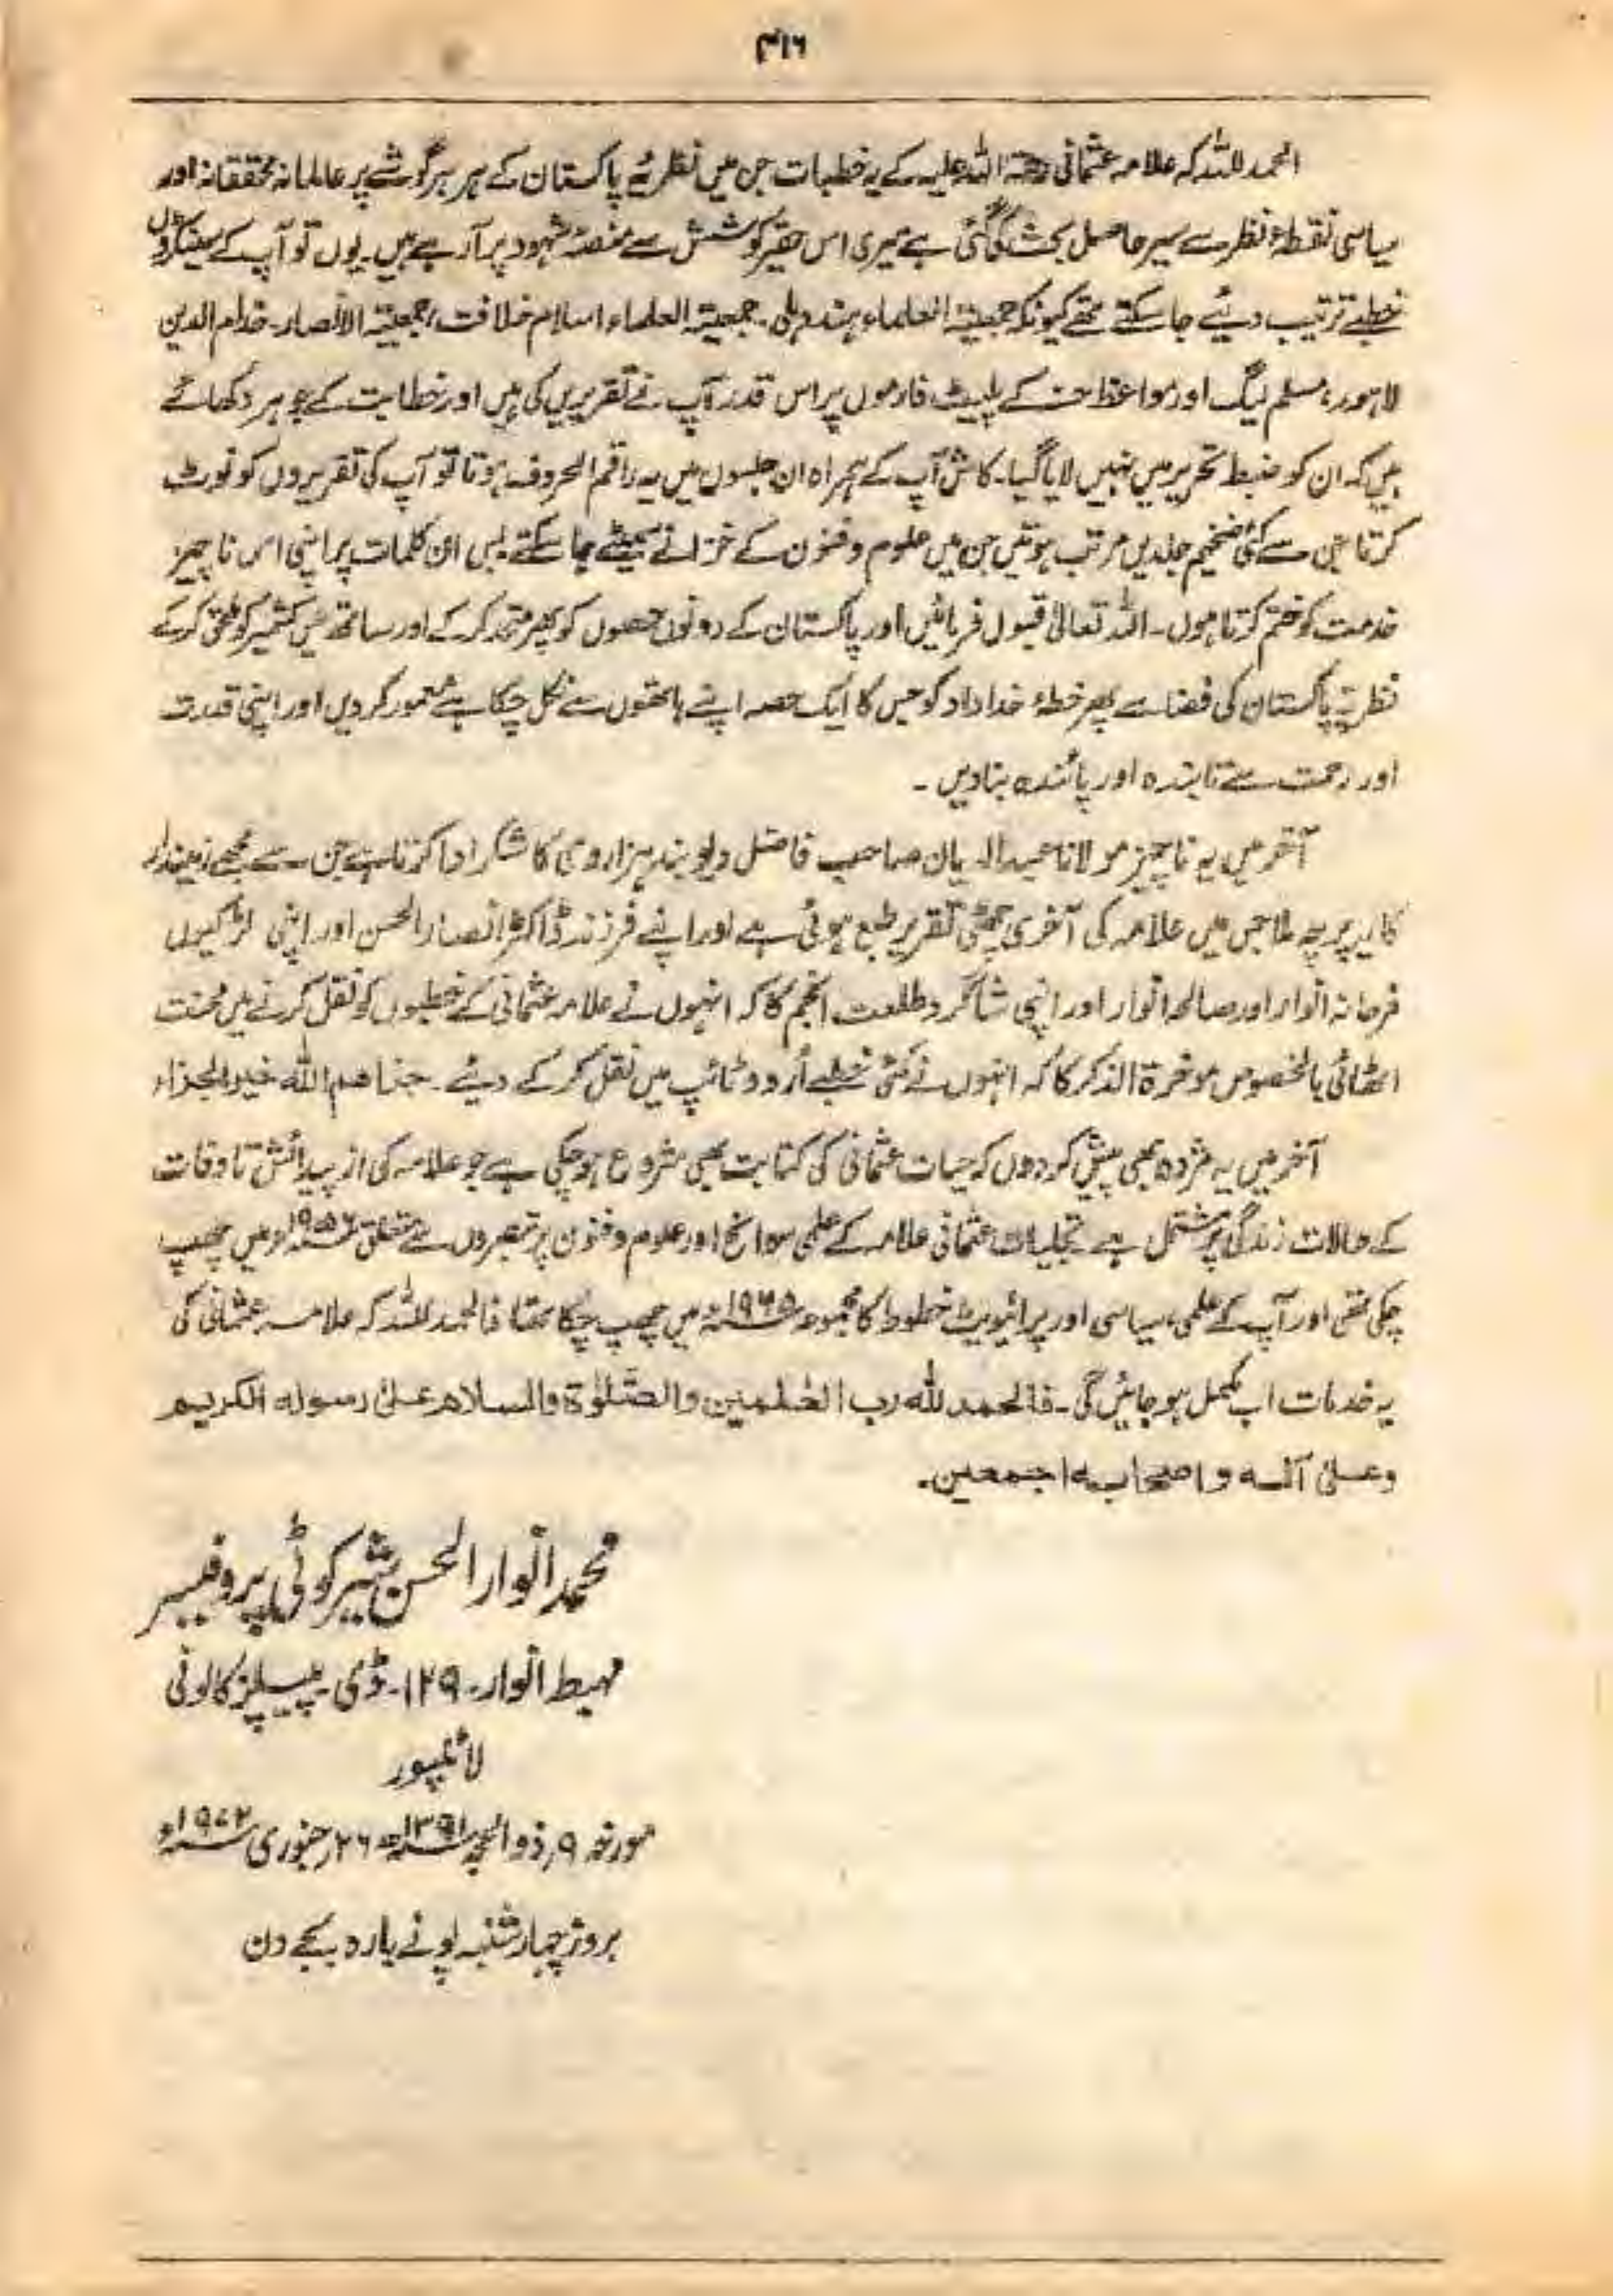 ۴۱۶
الحمد للہ کہ علامہ عثمانی رحمۃ اللہ علیہ کے یہ خطبات جن میں نظریۂ پاکستان کے ہر ہر گوشے پر عالمانہ محققانہ اور
سیاسی نقطۂ نظر سے سیر حاصل بحث کی گئی ہے میری اس حقیر کوشش سے منصۂ شہود پر آ رہے ہیں۔ یوں تو آپ کے سینکڑوں
خطبے ترتیب دیئے جا سکتے تھے کیونکہ جمعیۃ العلماء ہند دہلی۔ جمعیۃ العلماء اسلام خلافت، جمعیۃ الانصار۔ خدام الدین
لاہور، مسلم لیگ اور مواعظ کے پلیٹ فارموں پر اس قدر آپ نے تقریریں کی ہیں اور خطابت کے جوہر دکھائے
ہیں کہ ان کو ضبط تحریر میں نہیں لایا گیا۔ کاش آپ کے ہمراہ ان جلسوں میں یہ راقم الحروف ہوتا تو آپ کی تقریروں کو نوٹ
کرتا جن سے کئی ضخیم جلدیں مرتب ہوتیں جن میں علوم و فنون کے خزانے سمیٹے جا سکتے۔ بس ان کلمات پر اپنی اس ناچیز
خدمت کو ختم کرتا ہوں۔ اللہ تعالیٰ قبول فرمائیں اور پاکستان کے دونوں حصوں کو پھر متحد کر کے اور ساتھ ہی کشمیر کو ملحق کر کے
نظریۂ پاکستان کی فضا سے پھر خطۂ خداداد کو جس کا ایک حصہ اپنے ہاتھوں سے نکل چکا ہے معمور کر دیں اور اپنی قدرت
اور رحمت سے تابندہ اور پائندہ بنا دیں ۔
آخر میں یہ ناچیز مولانا عبدالدیان صاحب فاضل دیوبند ہزاروی کا شکر ادا کرتا ہے جن سے مجھے زمیندار
کا یہ پرچہ ملا جس میں علامہ کی آخری چھٹی تقریر طبع ہوئی ہے اور اپنے فرزند ڈاکٹر انصار الحسن اور اپنی لڑکیوں
فرحانہ انوار اور صالحہ انوار اور اپنی شاگرد طلعت انجم کا کہ انہوں نے علامہ عثمانی کے خطبوں کو نقل کرنے میں محنت
اٹھائی بالخصوص موخرۃ الذکر کا کہ انہوں نے کئی خطبے اُردو ٹائپ میں نقل کر کے دیئے۔ جزاھم اللہ خیر الجزاء
آخر میں یہ مژدہ بھی پیش کر دوں کہ حیات عثمانی کی کتابت بھی شروع ہو چکی ہے جو علامہ کی از پیدائش تا وفات
کے حالات زندگی پر مشتمل ہے۔ تجلیات عثمانی علامہ کے علمی سوانح اور علوم و فنون پر تبصروں سے متعلق ۱۹۵۶ء میں چھپ
چکی تھی اور آپ کے علمی، سیاسی اور پرائیویٹ خطوط کا مجموعہ ۱۹۶۵ء میں چھپ چکا تھا فالحمد للہ کہ علامہ عثمانی کی
یہ خدمات اب مکمل ہو جائیں گی۔ فالحمد للہ رب العٰلمین والصّلوٰۃ والسلام علیٰ رسولہ الکریم
وعلیٰ آلہ واصحابہ اجمعین۔
محمد انوار الحسن شیرکوٹی پروفیسر
مہبط انوار۔ ۱۲۹۔ ڈی پیپلز کالونی
لائلپور
مورخہ ۹؍ ذوالحجہ ۱۳۹۱ھ ۲۶؍ جنوری ۱۹۷۲ء
بروز چہارشنبہ پونے بارہ بجے دن